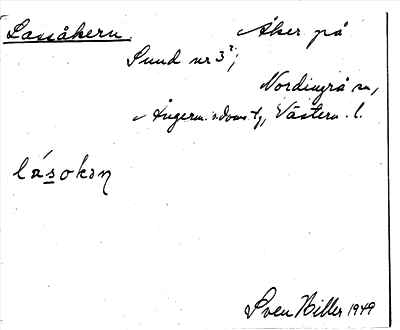 Lassåkern. Åker på
Sund nr 3²,
Nordingrå sn,
Ångerm. s. doms. tg, Västern. l.
lásokəṇ
Sven Hiller 1949